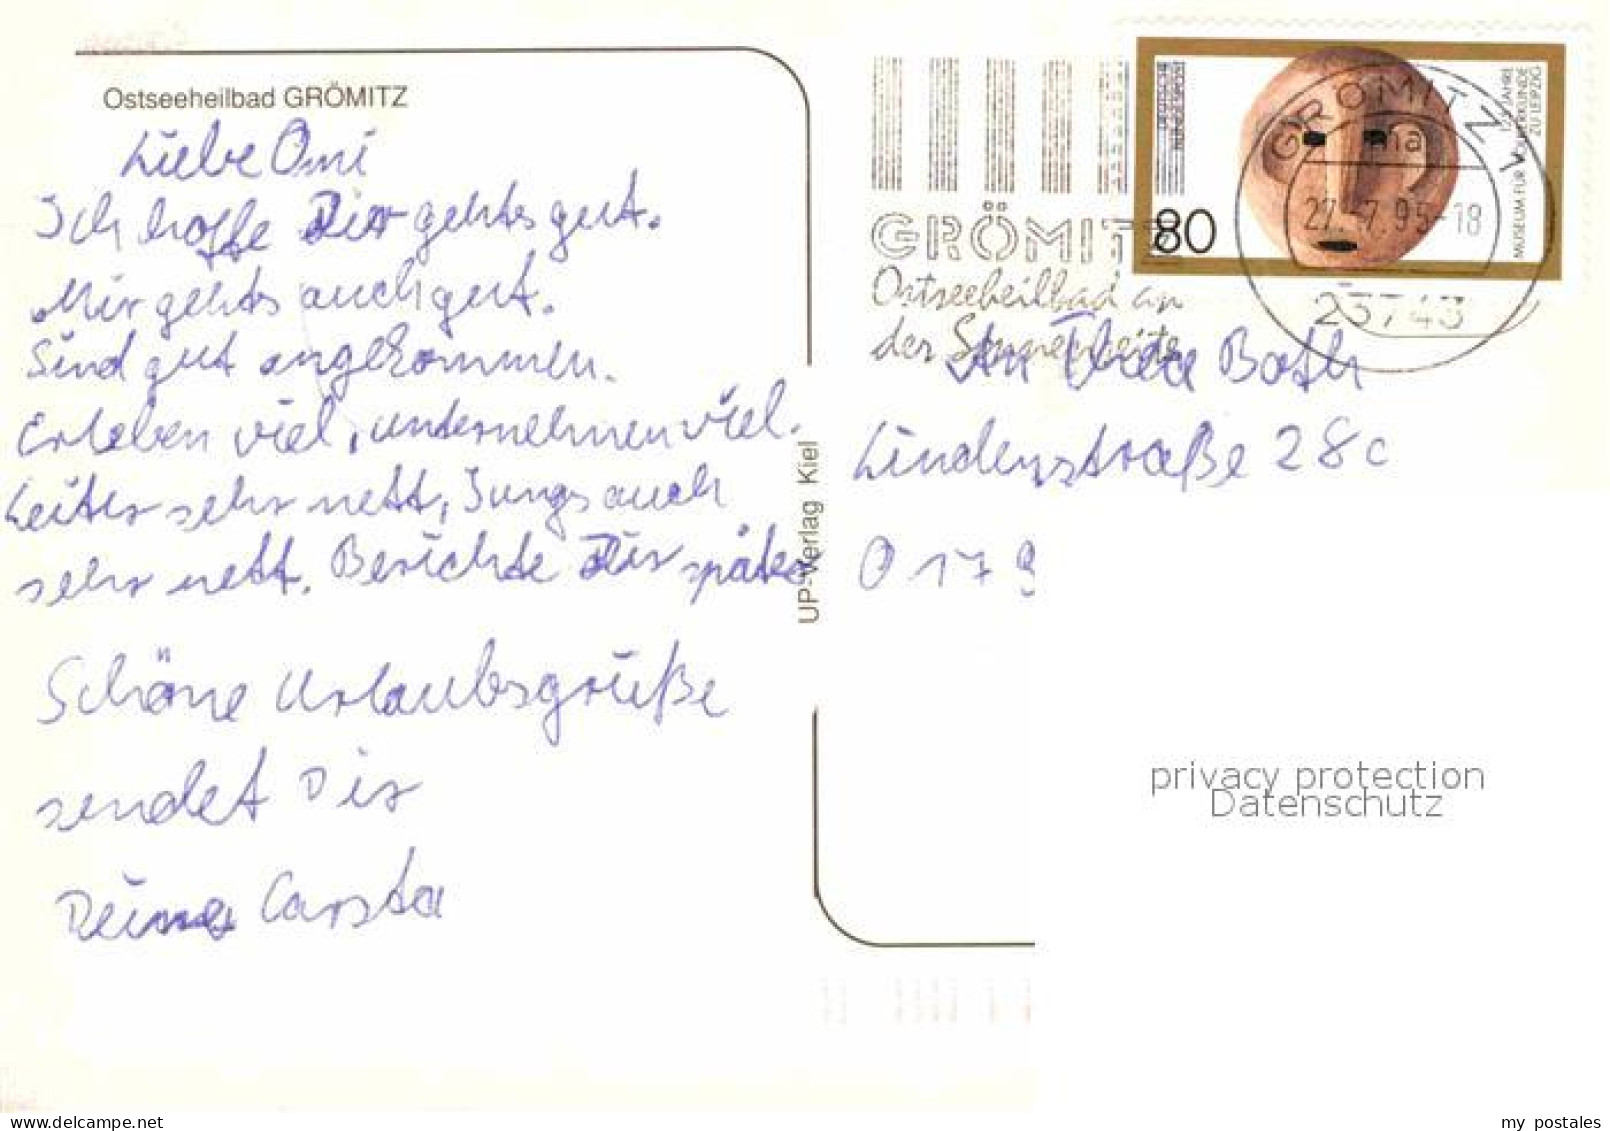 Ostseeheilbad GRÖMITZ
Liebe Omi
Ich hoffe Dir gehts gut.
Mir gehts auch gut.
Sind gut angekommen.
Erleben viel, unternehmen viel.
Leiter sehr nett, Jungs auch
sehr nett. Berichte Dir später
Schöne Urlaubsgrüße
sendet Dir
Deine Carsta
UP-Verlag Kiel
GRÖMITZ
Ostseeheilbad an
der Sonnenseite
DEUTSCHE
BUNDESPOST
80
125 JAHRE
MUSEUM FÜR VÖLKERKUNDE
ZU LEIPZIG
GRÖMITZ 1
ma
27.-7.95-18
23743
An Thea Both
Lindenstraße 28c
O 179
privacy protection
Datenschutz
delcampe.net
my_postales